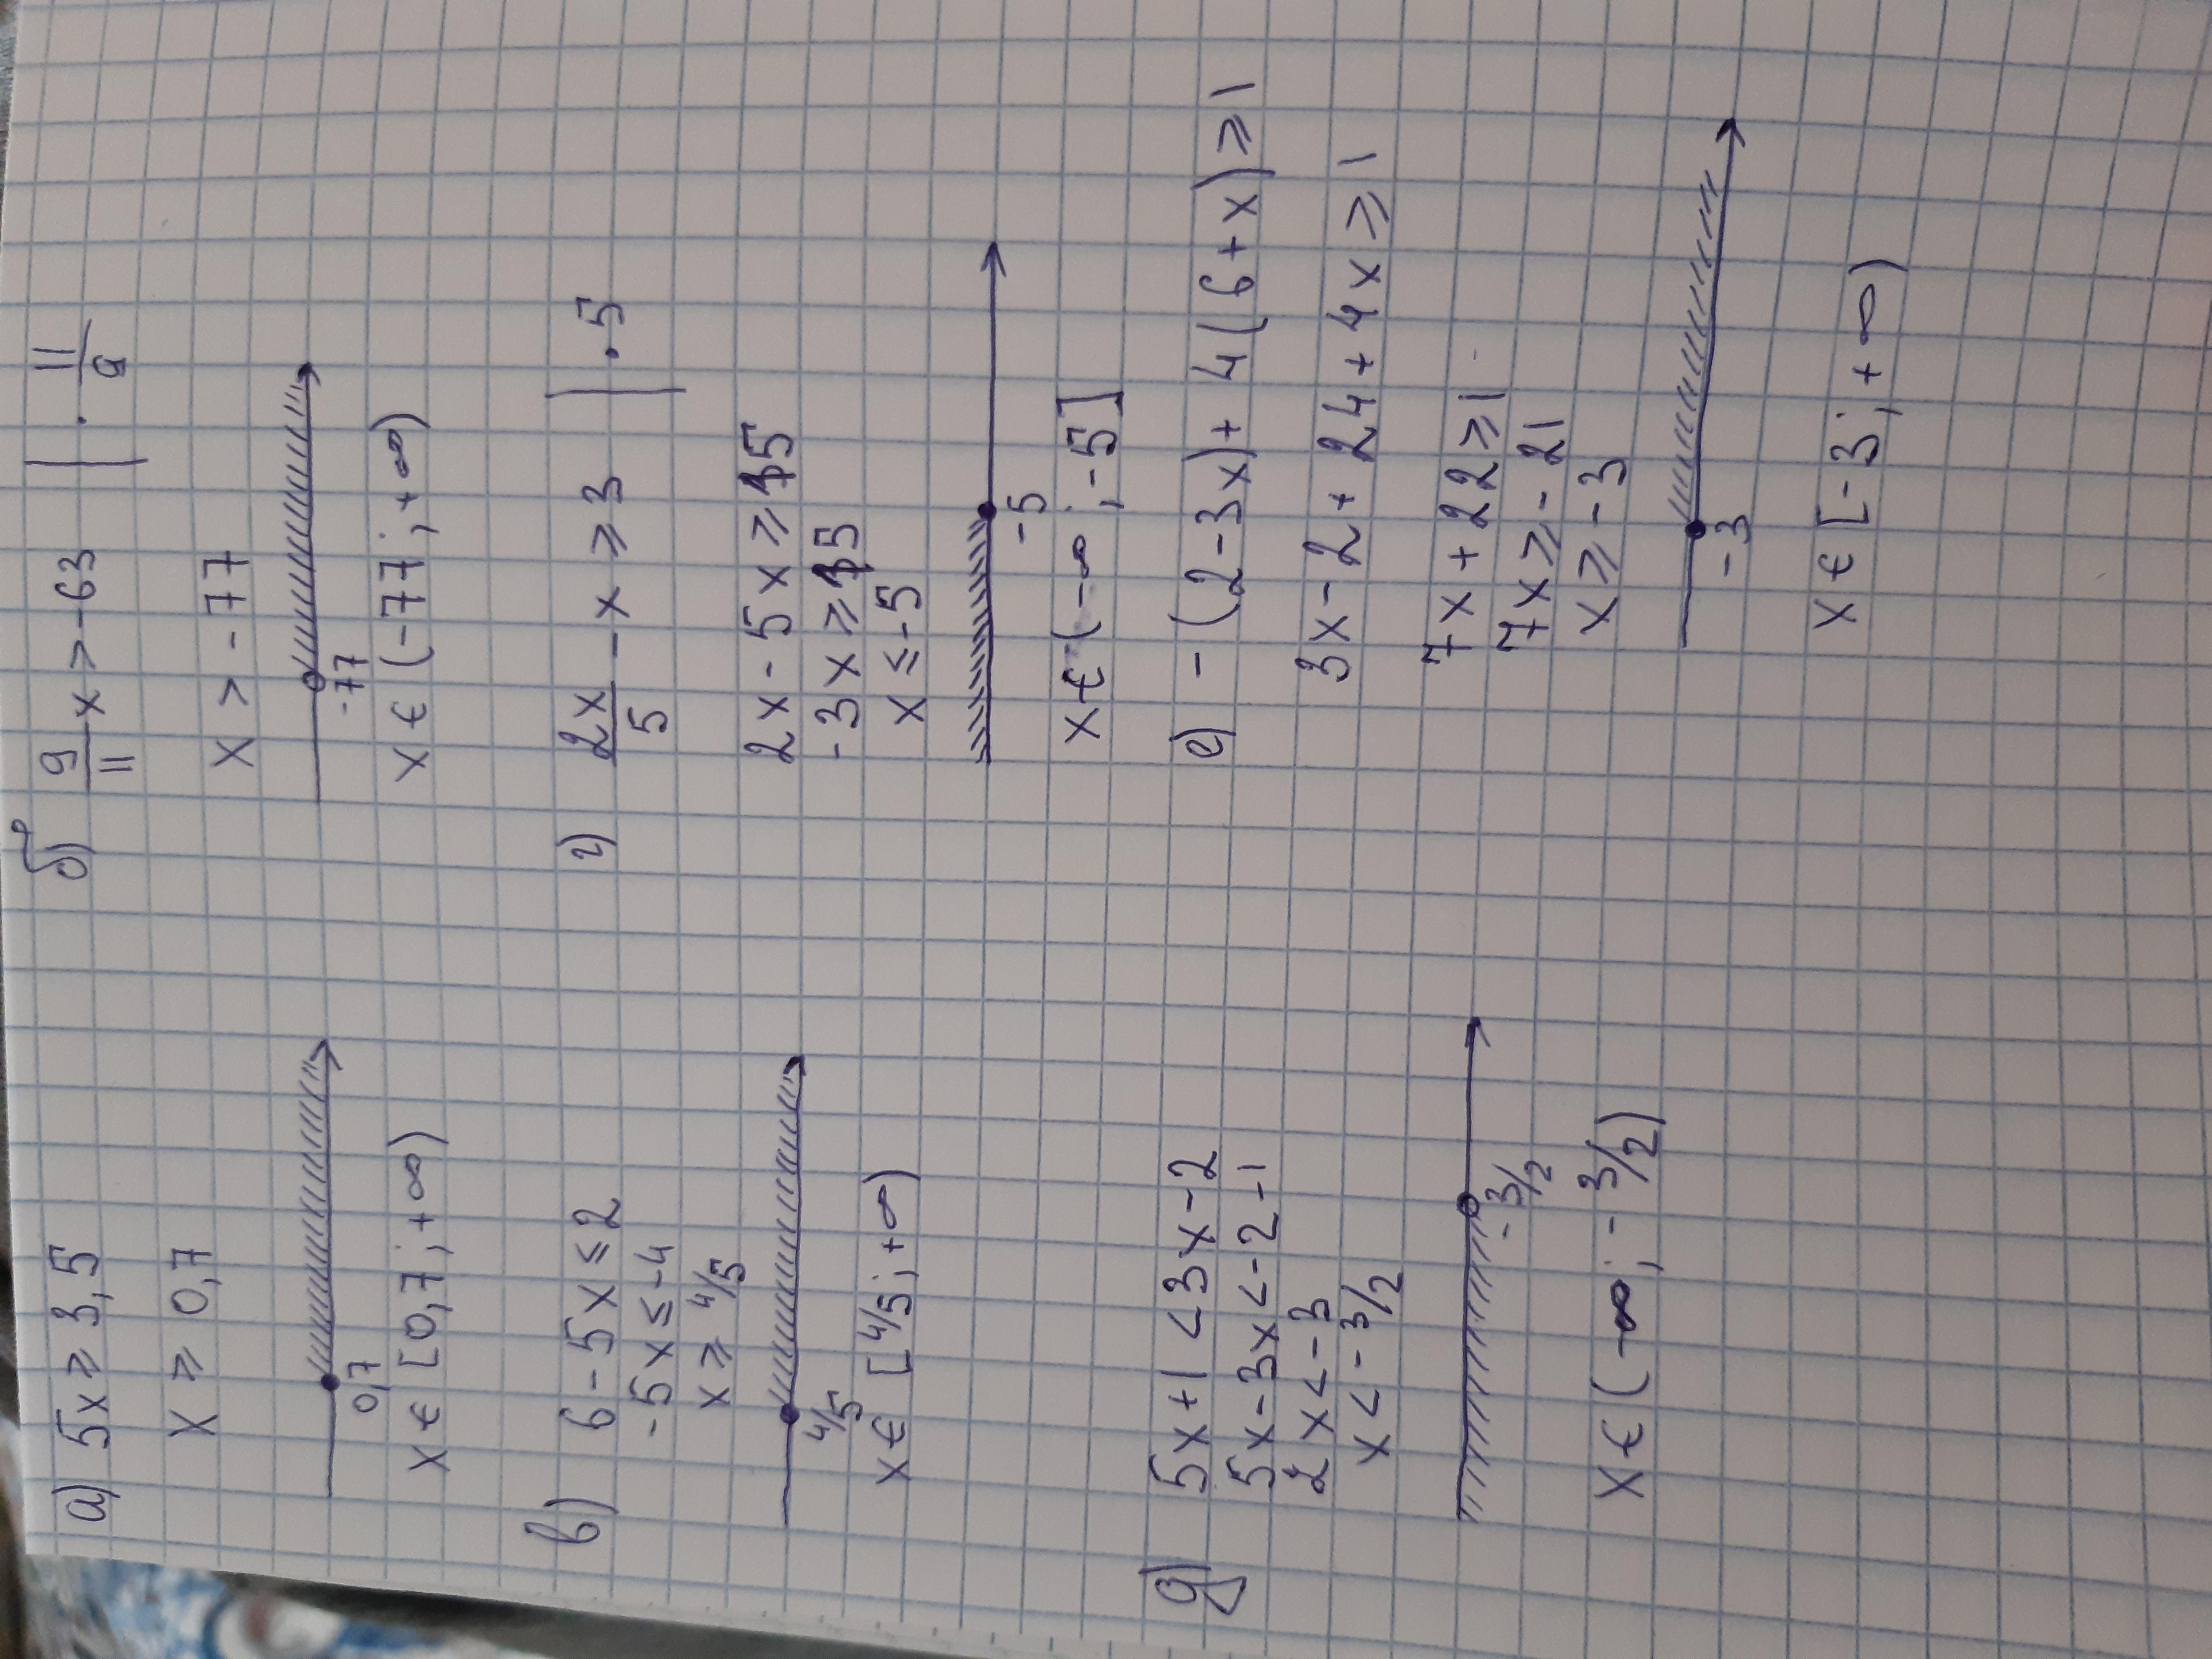 а) 5x ⩾ 3,5
x ⩾ 0,7
0,7
x ∈ [0,7; +∞)
б) 9/11 x > -63 | · 11/9
x > -77
-77
x ∈ (-77; +∞)
в) 6 - 5x ≤ 2
-5x ≤ -4
x ⩾ 4/5
4/5
x ∈ [4/5; +∞)
г) 2x/5 - x ⩾ 3 | · 5
2x - 5x ⩾ 15
-3x ⩾ 15
x ≤ -5
-5
x ∈ (-∞; -5]
д) 5x + 1 < 3x - 2
5x - 3x < -2 - 1
2x < -3
x < -3/2
-3/2
x ∈ (-∞; -3/2)
е) -(2 - 3x) + 4(6 + x) ⩾ 1
3x - 2 + 24 + 4x ⩾ 1
7x + 22 ⩾ 1
7x ⩾ -21
x ⩾ -3
-3
x ∈ [-3; +∞)